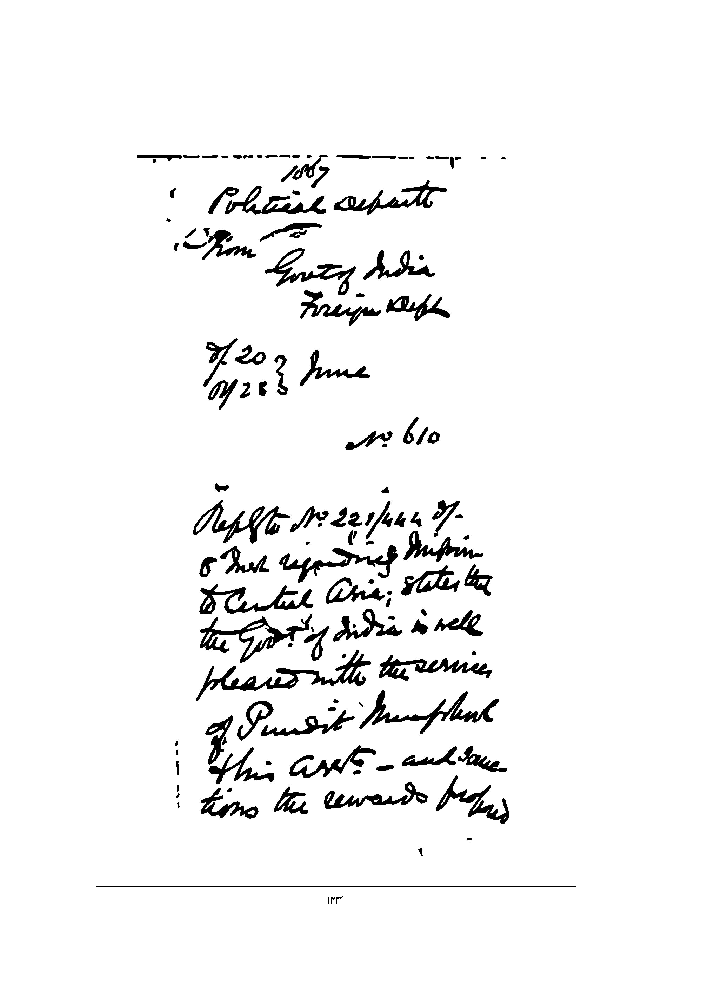 1867
Political Departt
From
Govt of India
Foreign Dept
d/. 20 } June
r/ 28
No 610
Reply to No 221/444 d/.
8 Inst regarding Mission
to Central Asia; states that
the Govt. of India is well
pleased with the services
of Pundit Munphool
& his Assts. – and sanc-
tions the rewards proposed
١٣٣